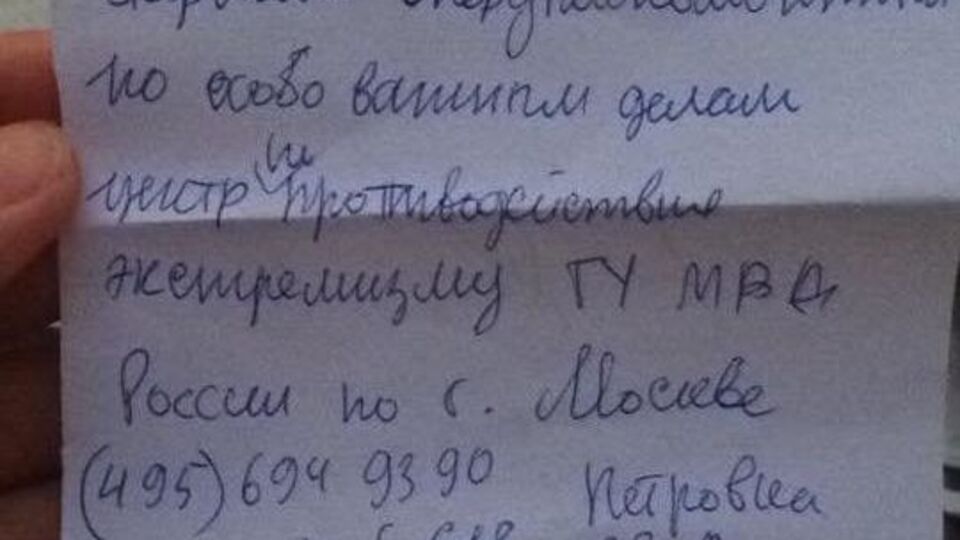 по особо важным делам
центр и противодействия
экстремизму ГУ МВД
России по г. Москве
(495) 694 93 90 Петровка